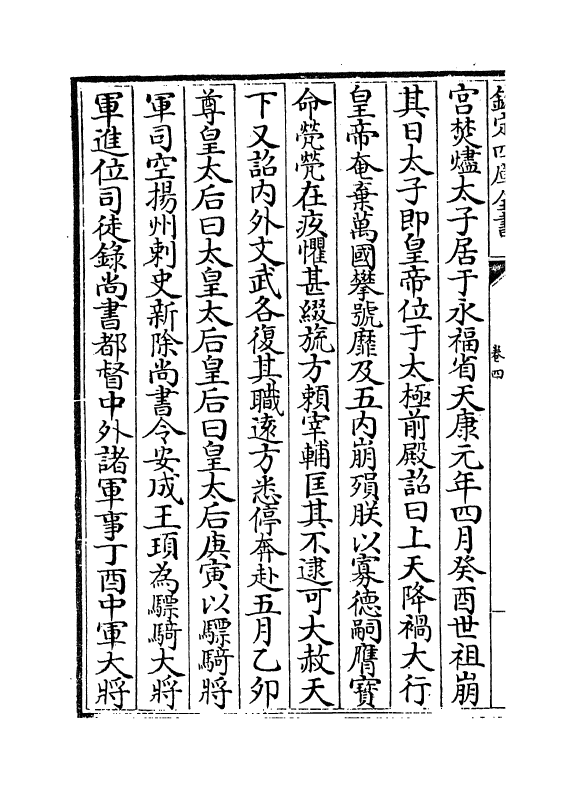 欽定四庫全書
卷四
宫焚燼太子居于永福省天康元年四月癸酉世祖崩
其日太子即皇帝位于太極前殿詔曰上天降禍大行
皇帝奄棄萬國攀號靡及五内崩殞朕以寡德嗣膺寶
命煢煢在疚懼甚綴旒方賴宰輔匡其不逮可大赦天
下又詔内外文武各復其職遠方悉停奔赴五月乙卯
尊皇太后曰太皇太后皇后曰皇太后庚寅以驃騎將
軍司空揚州刺史新除尚書令安成王頊為驃騎大將
軍進位司徒錄尚書都督中外諸軍事丁酉中軍大將